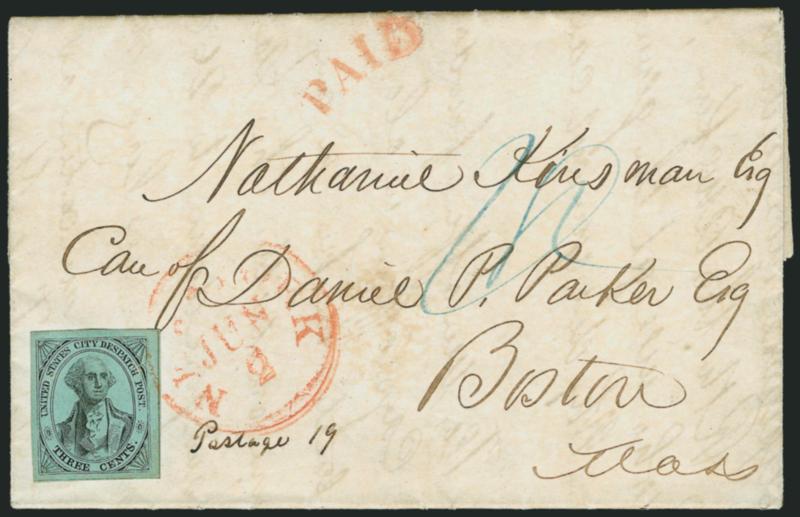 PAID
Nathaniel Kinsman Esq
Care of Daniel P. Parker Esq
Boston
Mass
NEW YORK
JUN
2
UNITED STATES CITY DESPATCH POST.
THREE CENTS.
Postage 19